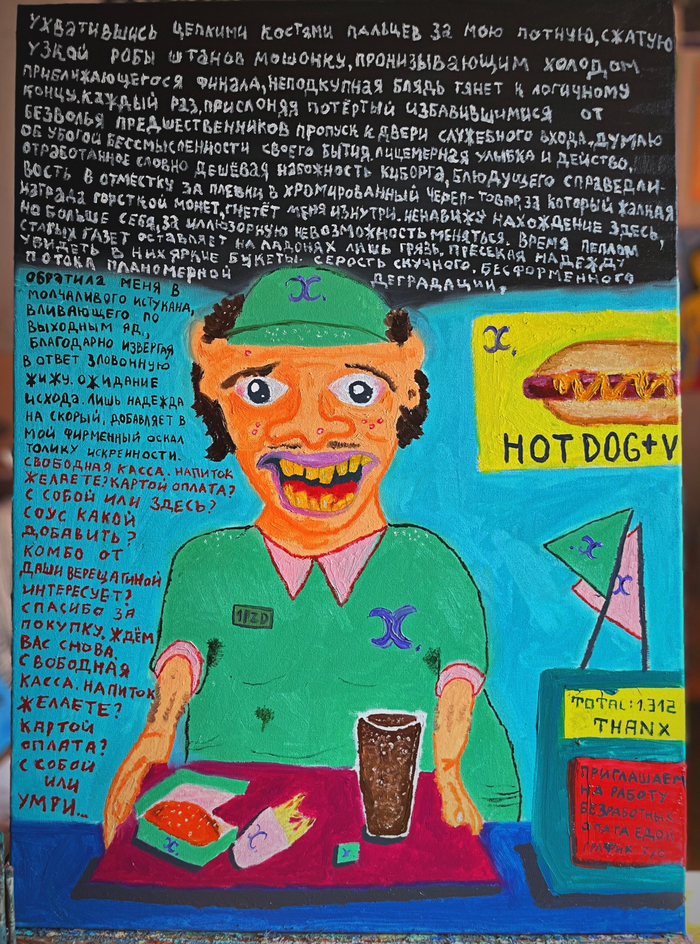 УХВАТИВШИСЬ ЦЕПКИМИ КОСТЯМИ ПАЛЬЦЕВ ЗА МОЮ ПОТНУЮ, СЖАТУЮ
УЗКОЙ РОБЫ ШТАНОВ МОШОНКУ, ПРОНИЗЫВАЮЩИМ ХОЛОДОМ
ПРИБЛИЖАЮЩЕГОСЯ ФИНАЛА, НЕПОДКУПНАЯ БЛЯДЬ ТЯНЕТ К ЛОГИЧНОМУ
КОНЦУ. КАЖДЫЙ РАЗ, ПРИСЛОНЯЯ ПОТЁРТЫЙ ИЗБАВИВШИМИСЯ ОТ
БЕЗВОЛЬЯ ПРЕДШЕСТВЕННИКОВ ПРОПУСК К ДВЕРИ СЛУЖЕБНОГО ВХОДА, ДУМАЮ
ОБ УБОГОЙ БЕССМЫСЛЕННОСТИ СВОЕГО БЫТИЯ. ЛИЦЕМЕРНАЯ УЛЫБКА И ДЕЙСТВО,
ОТРАБОТАННОЕ СЛОВНО ДЕШЁВАЯ НАБОЖНОСТЬ КИБОРГА, БЛЮДУЩЕГО СПРАВЕДЛИ-
ВОСТЬ В ОТМЕСТКУ ЗА ПЛЕВКИ В ХРОМИРОВАННЫЙ ЧЕРЕП-ТОВАР, ЗА КОТОРЫЙ ЖАЛКАЯ
НАГРАДА ГОРСТКОЙ МОНЕТ, ГНЕТЁТ МЕНЯ ИЗНУТРИ. НЕНАВИЖУ НАХОЖДЕНИЕ ЗДЕСЬ,
НО БОЛЬШЕ СЕБЯ, ЗА ИЛЛЮЗОРНУЮ НЕВОЗМОЖНОСТЬ МЕНЯТЬСЯ. ВРЕМЯ ПЕПЛОМ
СТАРЫХ ГАЗЕТ ОСТАВЛЯЕТ НА ЛАДОНЯХ ЛИШЬ ГРЯЗЬ. ПРЕССКАЯ НАДЕЖДУ
УВИДЕТЬ В НИХ ЯРКИЕ БУКЕТЫ. СЕРОСТЬ СКУЧНОГО, БЕСФОРМЕННОГО
ПОТОКА ПЛАНОМЕРНОЙ ДЕГРАДАЦИИ,
ОБРАТИЛА МЕНЯ В
МОЛЧАЛИВОГО ИСТУКАНА,
ВЛИВАЮЩЕГО ПО
ВЫХОДНЫМ ЯД,
БЛАГОДАРНО ИЗВЕРГАЯ
В ОТВЕТ ЗЛОВОННУЮ
ЖИЖУ. ОЖИДАНИЕ
ИСХОДА. ЛИШЬ НАДЕЖДА
НА СКОРЫЙ, ДОБАВЛЯЕТ В
МОЙ ФИРМЕННЫЙ ОСКАЛ
ТОЛИКУ ИСКРЕННОСТИ.
СВОБОДНАЯ КАССА. НАПИТОК
ЖЕЛАЕТЕ? КАРТОЙ ОПЛАТА?
С СОБОЙ ИЛИ ЗДЕСЬ?
СОУС КАКОЙ
ДОБАВИТЬ?
КОМБО ОТ
ДАШИ ВЕРЕЩАГИНОЙ
ИНТЕРЕСУЕТ?
СПАСИБО ЗА
ПОКУПКУ. ЖДЁМ
ВАС СНОВА.
СВОБОДНАЯ
КАССА. НАПИТОК
ЖЕЛАЕТЕ?
КАРТОЙ
ОПЛАТА?
С СОБОЙ
ИЛИ
УМРИ...
X.
X.
HOT DOG+V
X.
X
1PZD
X.
TOTAL: 1.312
THANX
ПРИГЛАШАЕМ
НА РАБОТУ
БЕЗРАБОТНЫХ
ОПЛАТА ЕДОЙ
X.
X
X